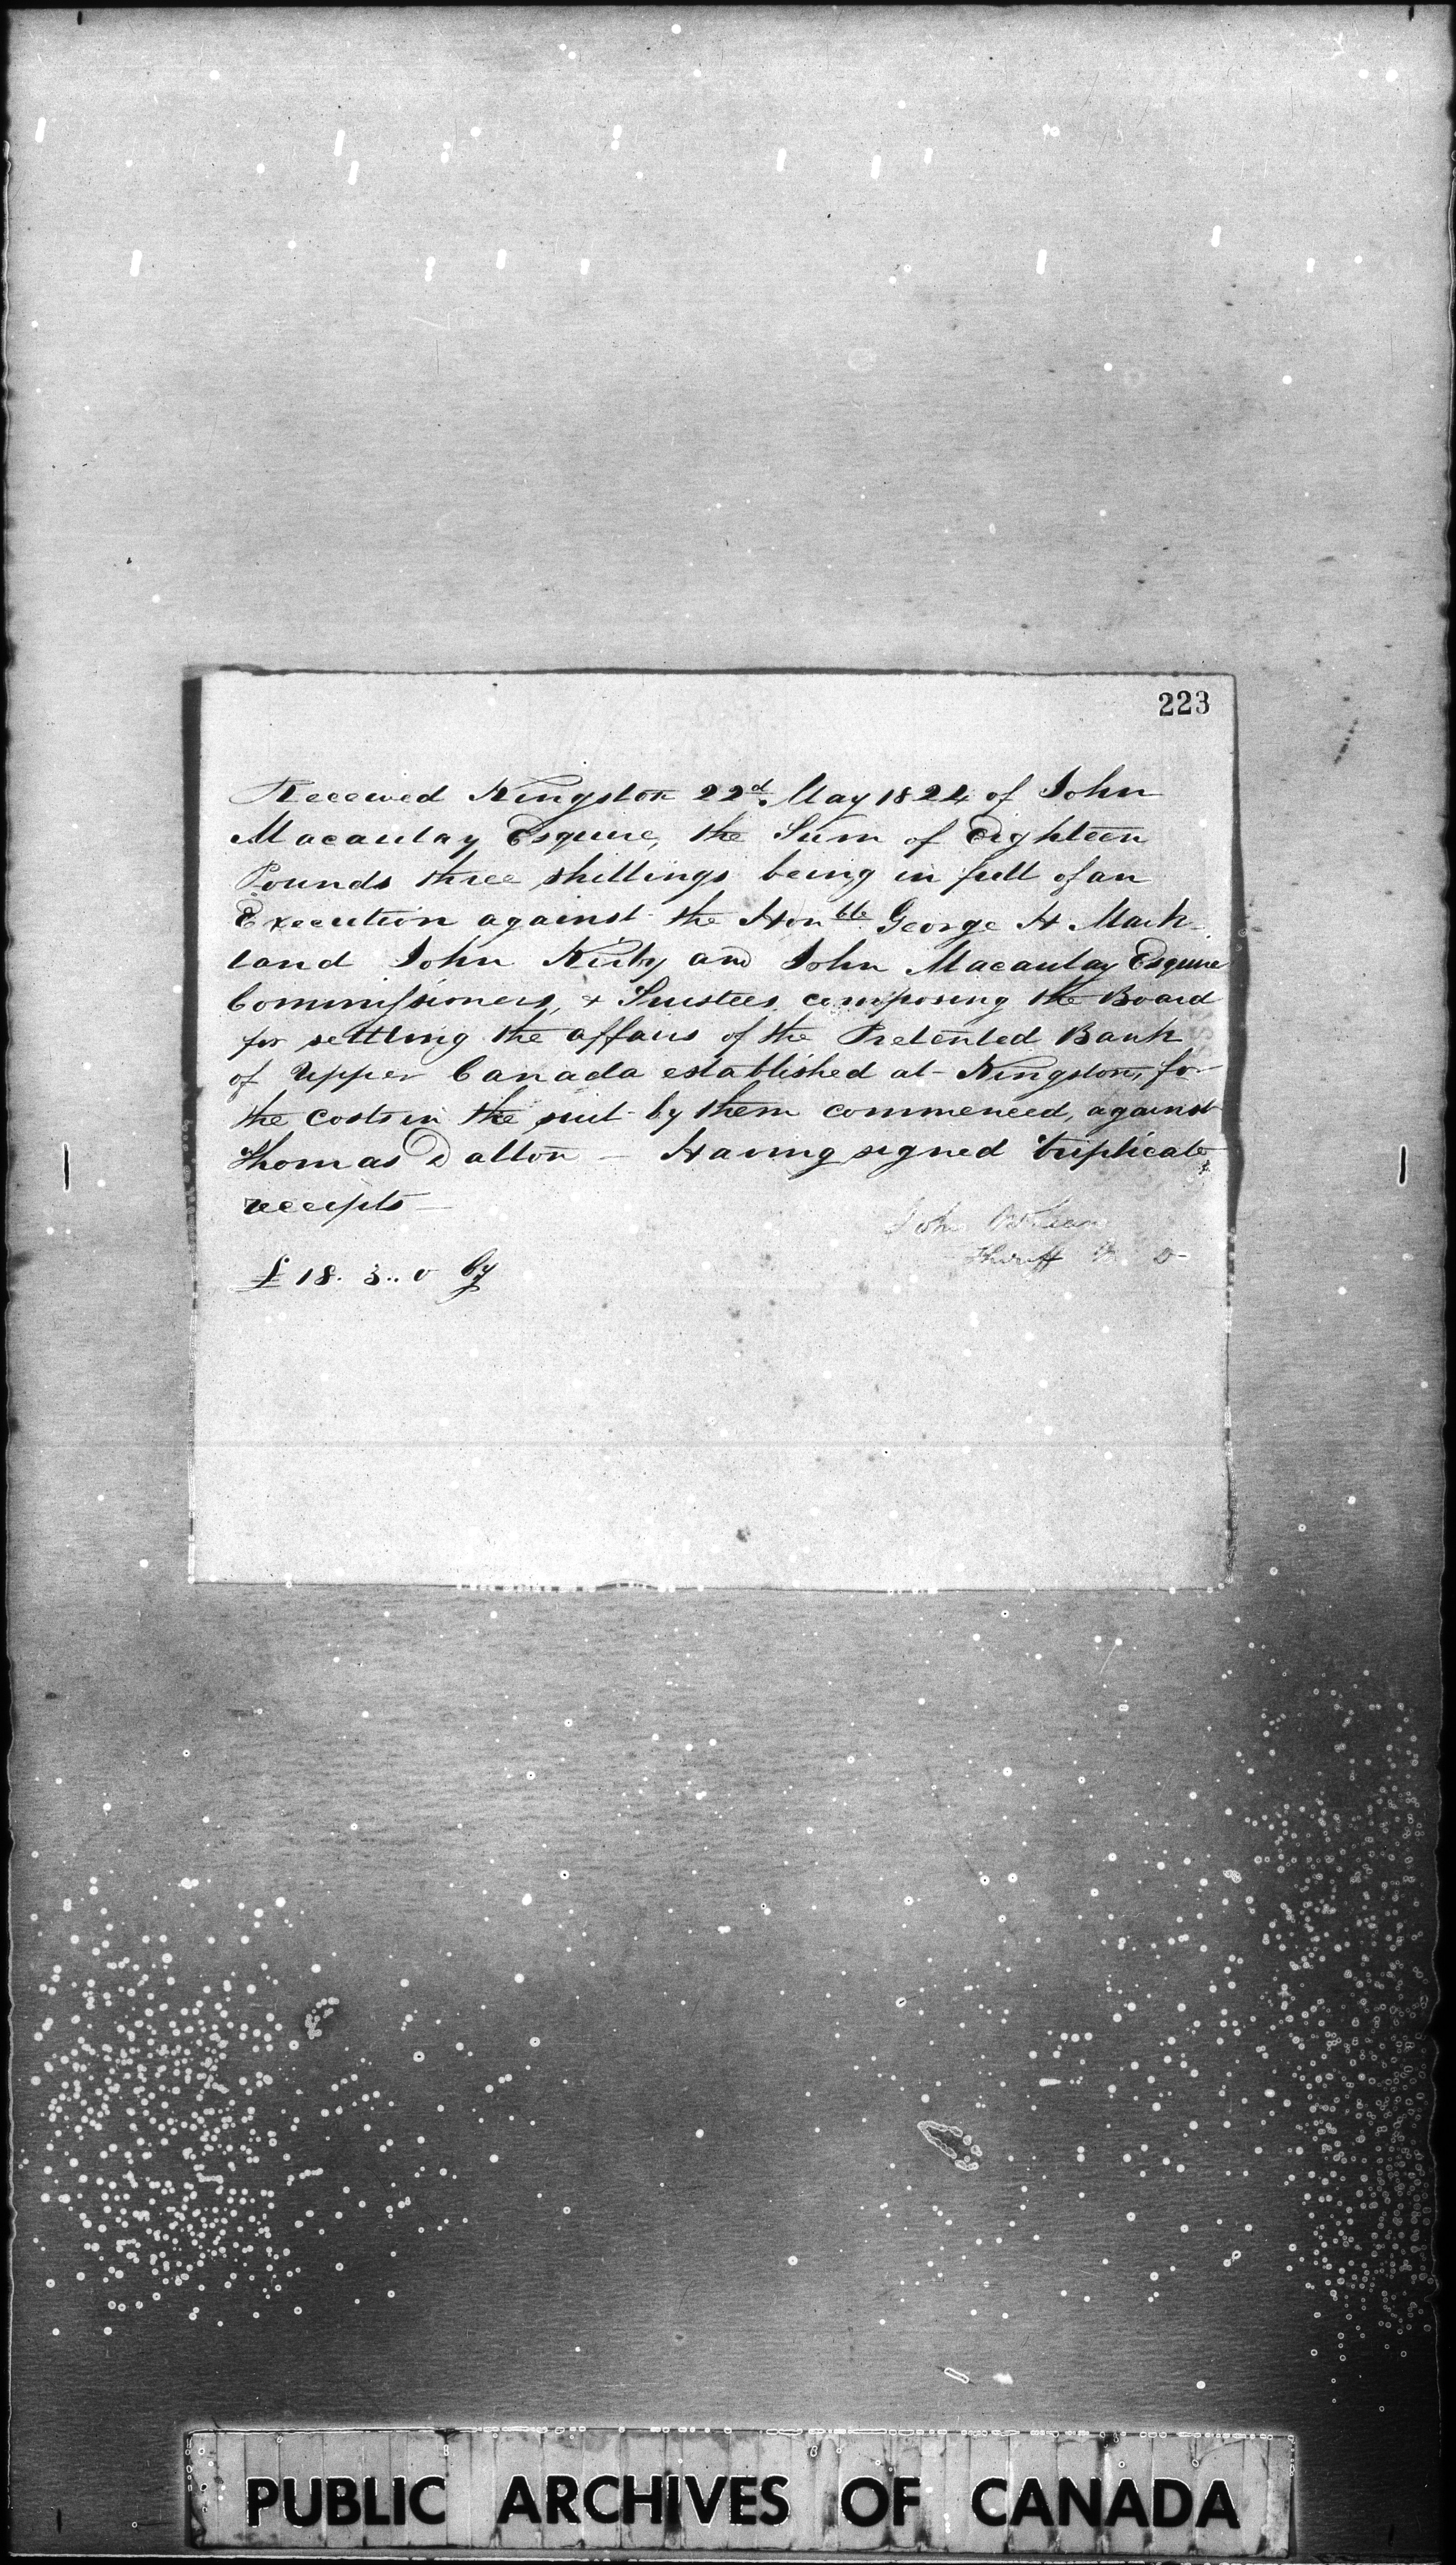 223
Received Kingston 22d. May 1824 of John
Macaulay Esquire, the Sum of Eighteen
Pounds three shillings being in full of an
Execution against the Honble. George H Mark-
land John Kirby and John Macaulay Esquire
Commissioners, & Trustees composing the Board
for settling the affairs of the Pretented Bank
of Upper Canada established at Kingston, for
the costs in the suit by them commenced, against
Thomas Dalton — Having signed triplicate
receipts —
John
Sheriff M. D
£ 18. 3.. 0 Cy
PUBLIC ARCHIVES OF CANADA